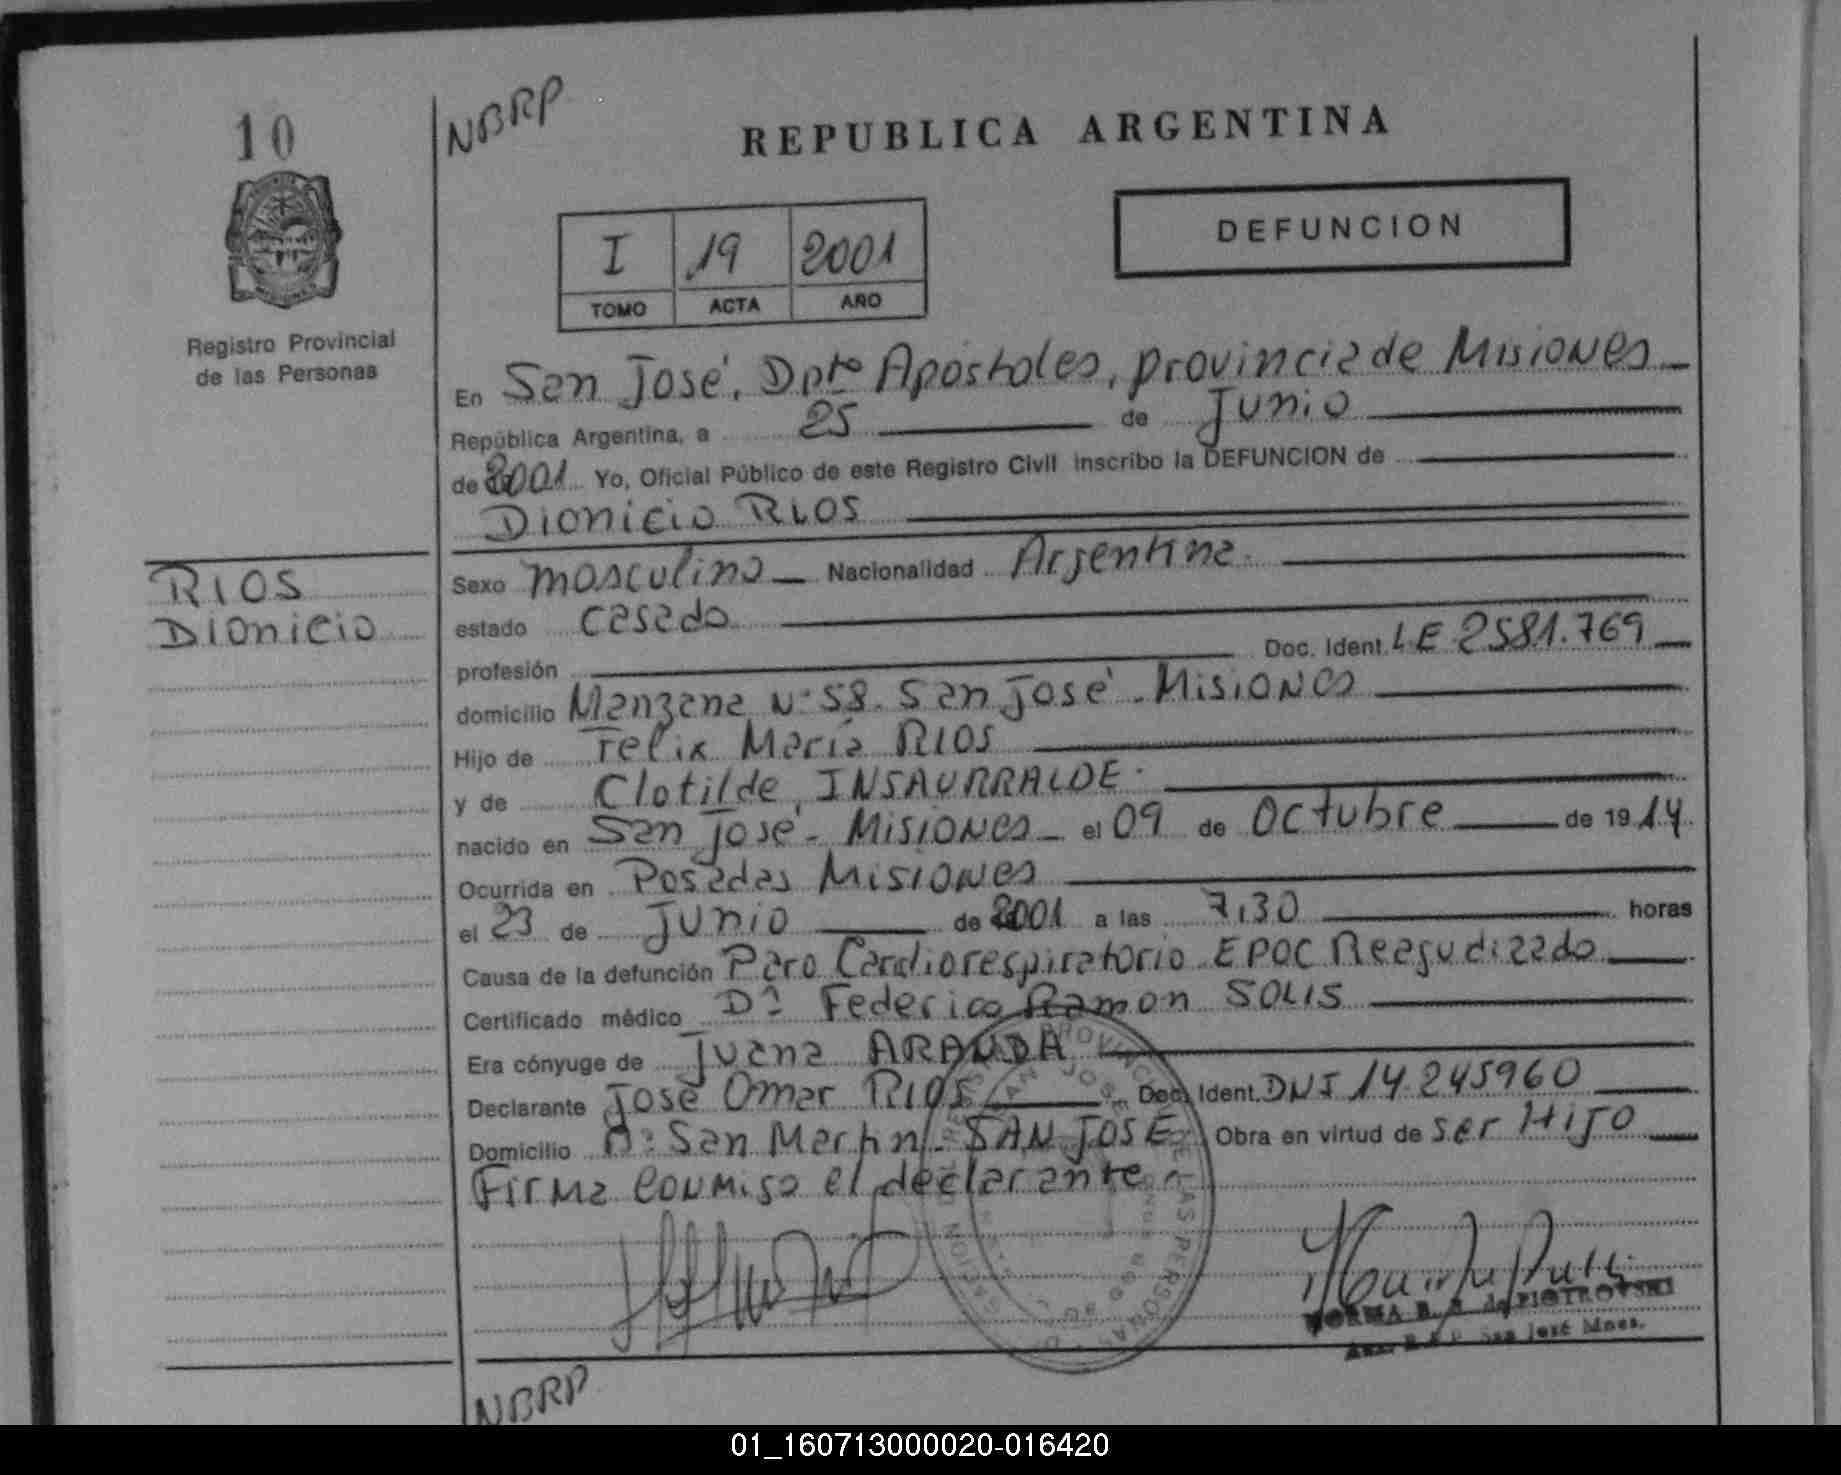 10
NBRP
REPUBLICA ARGENTINA
DEFUNCION
I 19 2001
TOMO ACTA AÑO
Registro Provincial
de las Personas
En San José, Dpto Apóstoles, provincia de Misiones
República Argentina, a 25 de Junio
de 2001 Yo, Oficial Público de este Registro Civil inscribo la DEFUNCION de
Dionicio RIOS
RIOS
Dionicio
Sexo masculino Nacionalidad Argentina
estado casado
profesión Doc. Ident. LE 2581.769
domicilio Manzana N° 58. San José - Misiones
Hijo de Felix María RIOS
y de Clotilde, INSAURRALDE.
nacido en San José - Misiones - el 09 de Octubre de 1914.
Ocurrida en Posadas Misiones
el 23 de Junio de 2001 a las 7,30 horas
Causa de la defunción Paro Cardiorespiratorio EPOC Reagudizado
Certificado médico Dr Federico Ramon SOLIS
Era cónyuge de Juana ARANDA
Declarante José Omar RIOS Doc. Ident. DNI 14.245960
Domicilio B° San Martin - SAN JOSE Obra en virtud de ser Hijo
Firma conmigo el declarante.
NORMA B. de PIOTROVSKI
San José Mnes.
NBRP
01_160713000020-016420